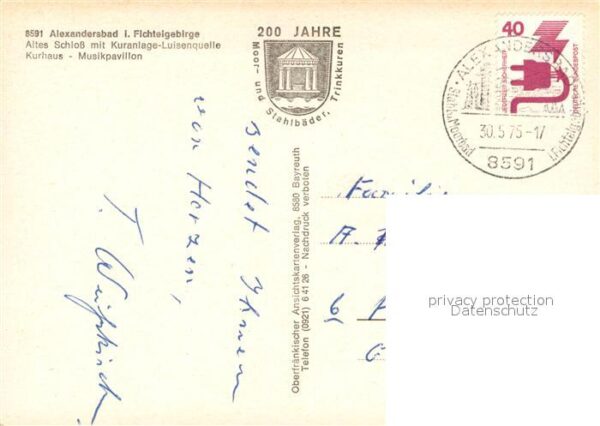 8591 Alexandersbad i. Fichtelgebirge
Altes Schloß mit Kuranlage-Luisenquelle
Kurhaus - Musikpavillon
200 JAHRE
Moor- und Stahlbäder, Trinkkuren
40
DEUTSCHE BUNDESPOST
30.5.75-17
8591
sendet Ihnen
von Herzen,
Oberfränkischer Ansichtskartenverlag, 8580 Bayreuth
Telefon (0921) 6 41 26 - Nachdruck verboten
Familie
A.
privacy protection
Datenschutz